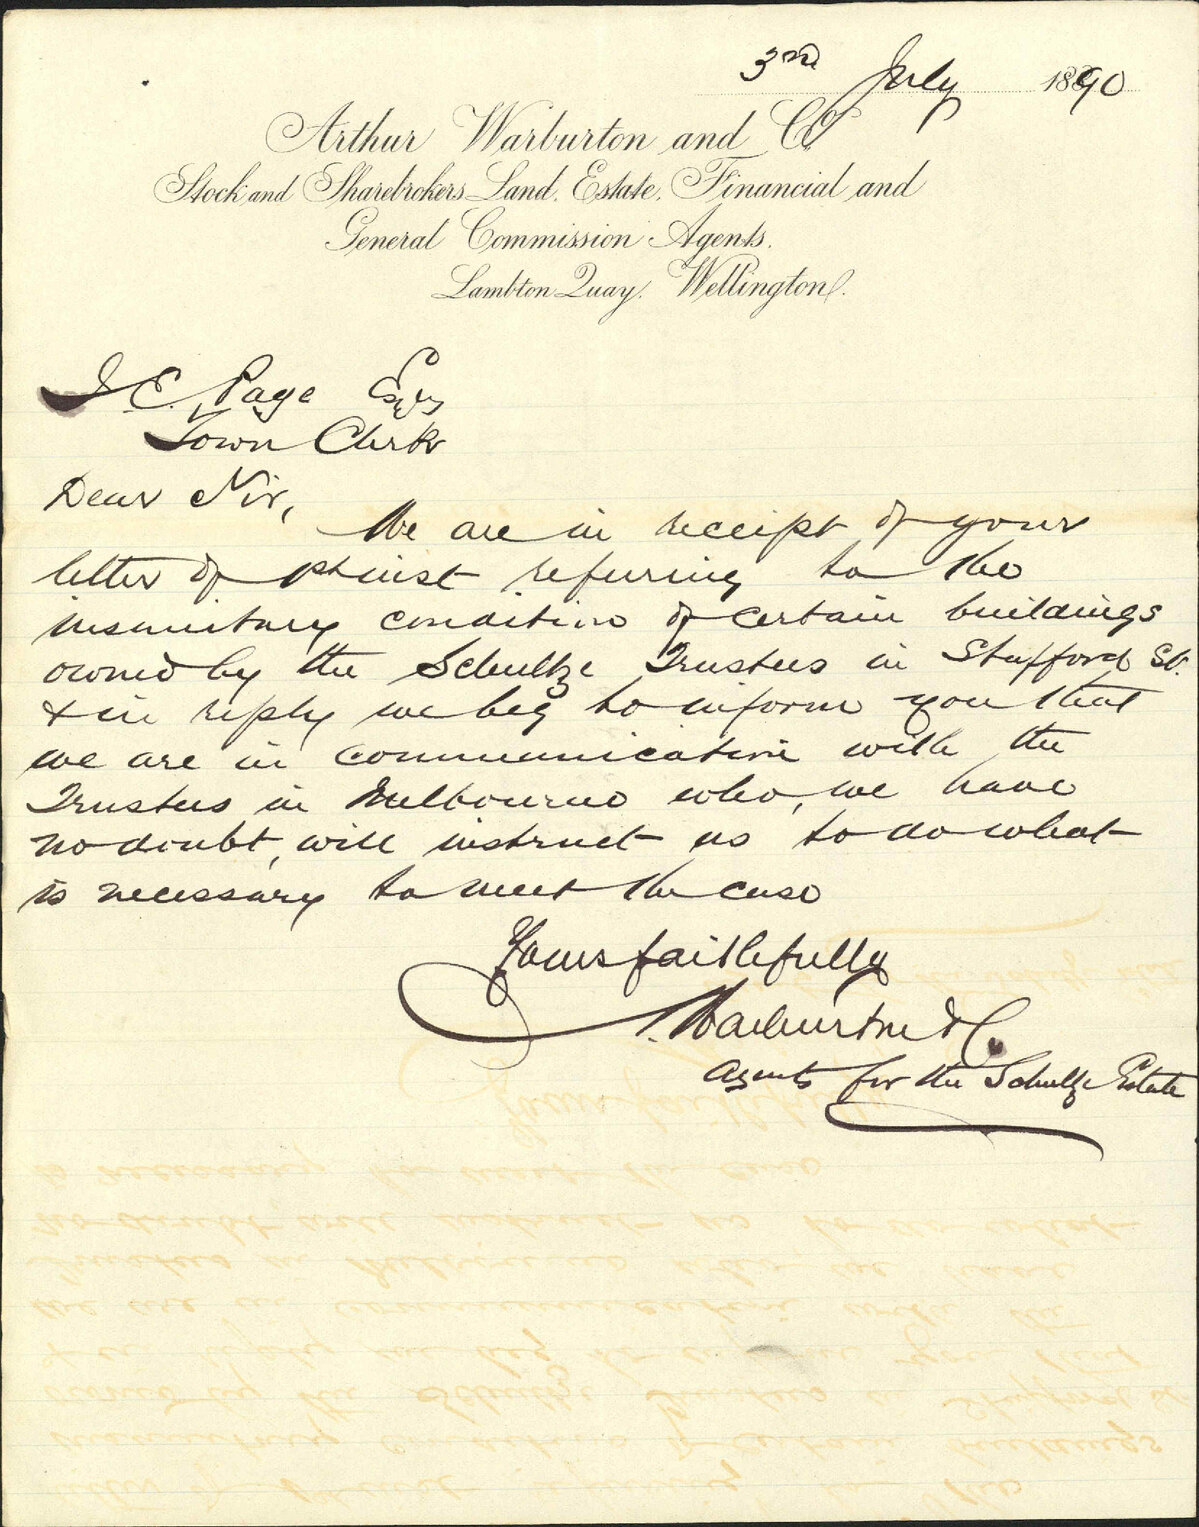 3rd July 1890
Arthur Warburton and Co
Stock and Sharebrokers Land, Estate, Financial and
General Commission Agents.
Lambton Quay, Wellington.
J E. Page Esqre
Town Clerk
Dear Sir,
We are in receipt of your
letter of 1st inst referring to the
insanitary condition of certain buildings
owned by the Schultze Trustees in Stafford St.
& in reply we beg to inform you that
we are in communication with the
Trustees in Melbourne who, we have
no doubt, will instruct us to do what
is necessary to meet the case
Yours faithfully
A. Warburton & Co.
Agents for the Schultze Estate